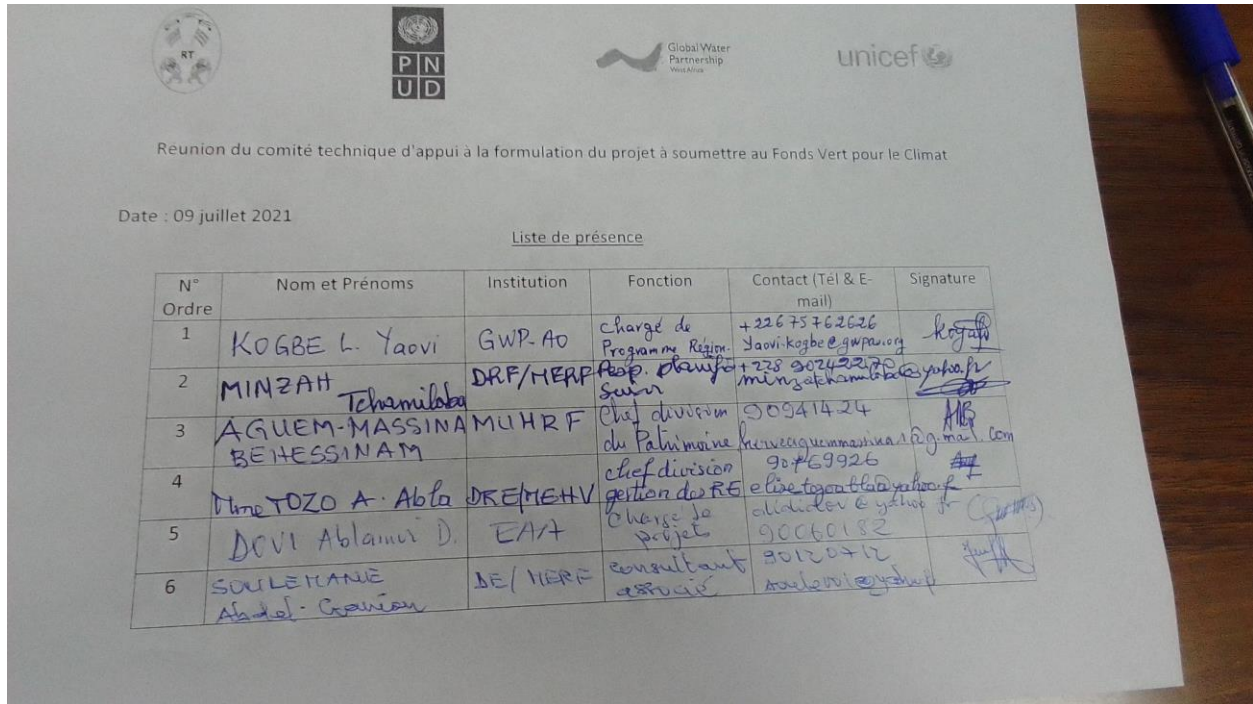 RT
PNUD
Global Water
Partnership
West Africa
unicef
Réunion du comité technique d'appui à la formulation du projet à soumettre au Fonds Vert pour le Climat
Date : 09 juillet 2021
Liste de présence
N° Ordre Nom et Prénoms Institution Fonction Contact (Tél & E-mail) Signature
1 KOGBE L. Yaovi GWP-AO Chargé de Programme Région. +226 75762626 yaovi.kogbe@gwpao.org
2 MINZAH DRF/MERF Resp. planif Suivi
3 AGUEM-MASSINA BEHESSINAM MUHRF Chef division du Patrimoine 90941424
4 Mme TOZO A. Abla DRE/MEHV chef division gestion des RE 90769926
5 DOVI D. EAA Chargé de projet 90060182
6 SOULEMANE DE/MERF consultant associé 90120712